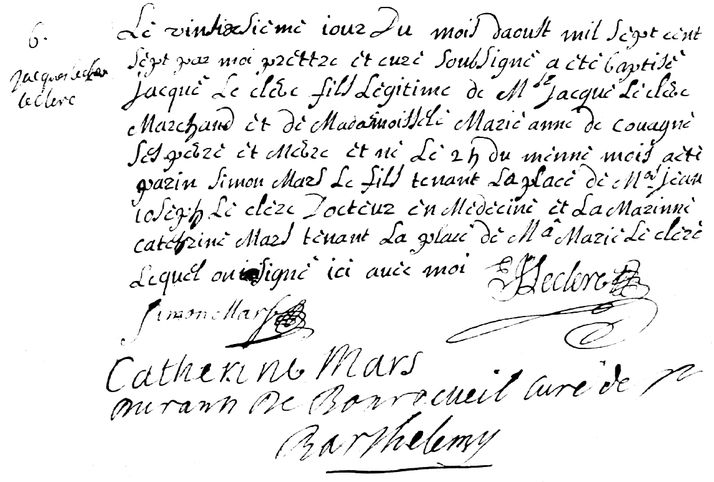 6.
Jacques leclerc
leclerc
Le vintisiéme iour Du mois daoust mil sept cent
sept par moi prettre et curé soussigné a été baptisé
jacque Le clerc fils Legitime de Mr jacque Le clerc
Marchand et de Madamoisselle Marie anne de couagne
ses pere et Mere et né Le 24 du menne mois a eté
parin Simon Mars Le fils tenant La place de Mr jean
ioseph Le clerc Docteur en Medecine et La Marinne
catehrine Mars tenant La place de Ma Marie Le clerc
Lequel ont signé ici avec moi Leclerc
Simon Mars
Catherine Mars
Durand De curé de St
Barthelemy